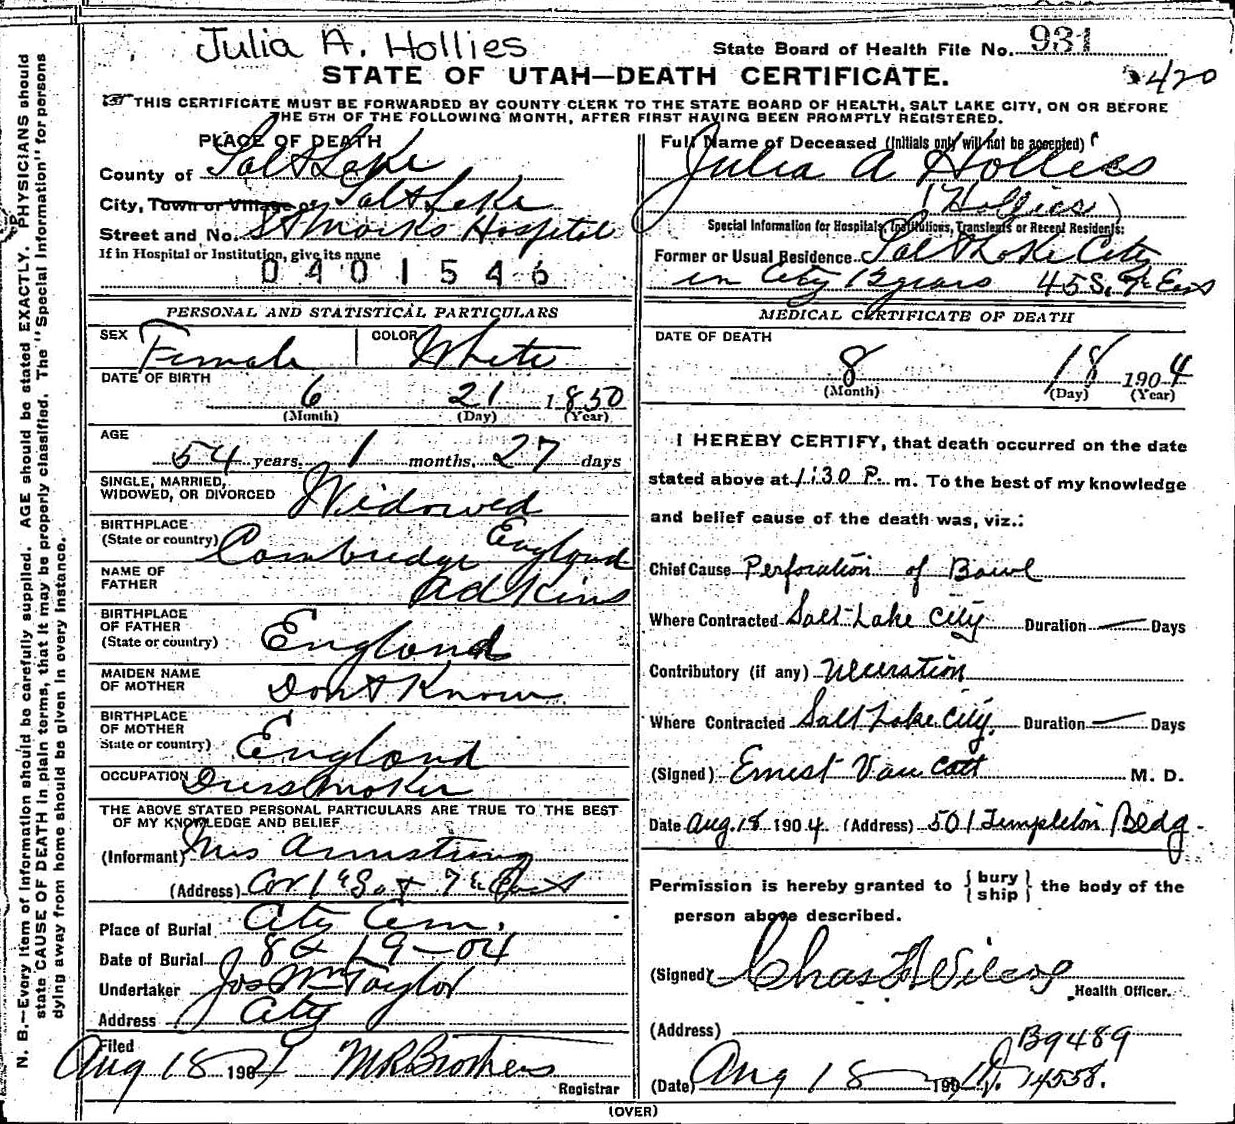 N. B.—Every item of information should be carefully supplied. AGE should be stated EXACTLY. PHYSICIANS should
state CAUSE OF DEATH in plain terms, that it may be properly classified. The "Special Information" for persons
dying away from home should be given in every instance.
Julia A. Hollies
State Board of Health File No. 931
STATE OF UTAH—DEATH CERTIFICATE.
420
THIS CERTIFICATE MUST BE FORWARDED BY COUNTY CLERK TO THE STATE BOARD OF HEALTH, SALT LAKE CITY, ON OR BEFORE
THE 5TH OF THE FOLLOWING MONTH, AFTER FIRST HAVING BEEN PROMPTLY REGISTERED.
PLACE OF DEATH
County of Salt Lake
City, Town or Village of Salt Lake
Street and No. St Marks Hospital
If in Hospital or Institution, give its name
0401546
PERSONAL AND STATISTICAL PARTICULARS
SEX Female COLOR White
DATE OF BIRTH
6 21 1850
(Month) (Day) (Year)
AGE
54 years, 1 months, 27 days
SINGLE, MARRIED,
WIDOWED, OR DIVORCED Widowed
BIRTHPLACE
(State or country) Cambridge England
NAME OF
FATHER Adkins
BIRTHPLACE
OF FATHER
(State or country) England
MAIDEN NAME
OF MOTHER Dont Know
BIRTHPLACE
OF MOTHER
State or country) England
OCCUPATION Dressmaker
THE ABOVE STATED PERSONAL PARTICULARS ARE TRUE TO THE BEST
OF MY KNOWLEDGE AND BELIEF
(Informant) Mrs Armstrong
(Address) Cor 1st So & 7th East
Place of Burial City Cem.
Date of Burial 8 19-04
Undertaker Jos Wm Taylor
Address City
Filed
Aug 18 1904 M R Brothers
Registrar
Full Name of Deceased (Initials only will not be accepted)
Julia A Holliess
(Hollies)
Special Information for Hospitals, Institutions, Transients or Recent Residents:
Former or Usual Residence Salt Lake City
in City 12 years 45 S. 7th East
MEDICAL CERTIFICATE OF DEATH
DATE OF DEATH
8 18 1904
(Month) (Day) (Year)
I HEREBY CERTIFY, that death occurred on the date
stated above at 1:30 P. m. To the best of my knowledge
and belief cause of the death was, viz.:
Chief Cause Perforation of Bowl
Where Contracted Salt Lake City Duration — Days
Contributory (if any) Ulceration
Where Contracted Salt Lake City. Duration — Days
(Signed) Ernest Van Cott M. D.
Date Aug. 18 1904. (Address) 501 Templeton Bldg.
Permission is hereby granted to { bury ship } the body of the
person above described.
(Signed) Chas F Wilcox
Health Officer.
(Address)
B9489
(Date) Aug 18 190 14558.
(OVER)